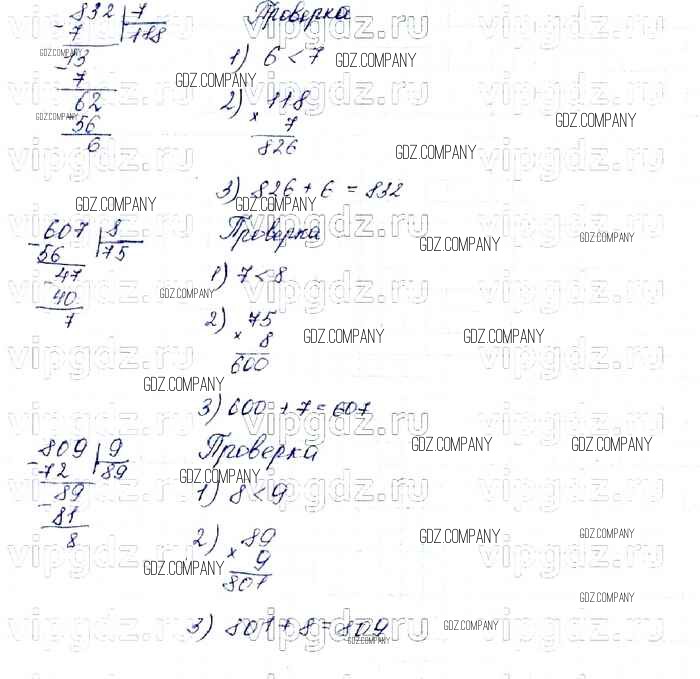 832 | 7 Проверка
- 7 | 118
13 1) 6 < 7
- 7
62 2) 118
56 × 7
6 826
3) 826 + 6 = 832
607 | 8 Проверка
- 56 | 75
47 1) 7 < 8
- 40
7 2) 75
× 8
600
3) 600 + 7 = 607
809 | 9 Проверка
- 72 | 89
89 1) 8 < 9
- 81
8 2) 89
× 9
801
3) 801 + 8 = 809
GDZ.COMPANY
vipgdz.ru